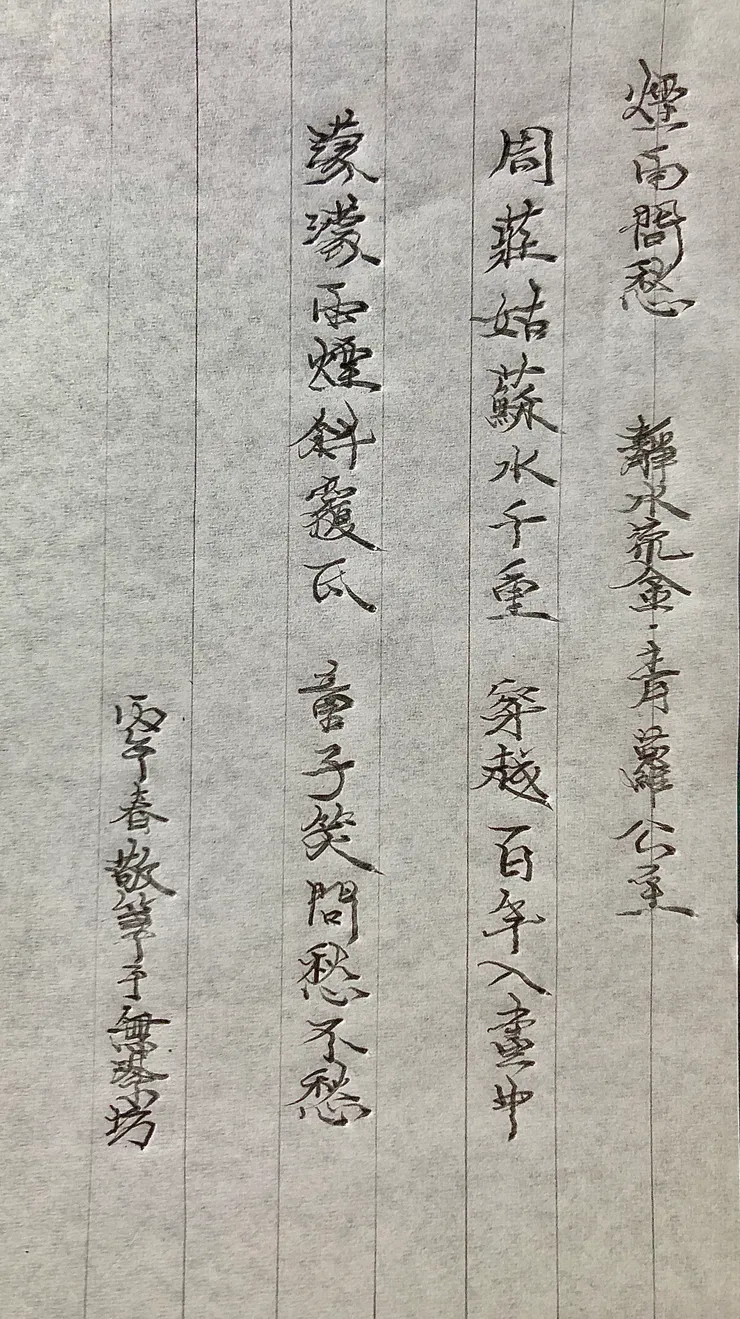 煙雨問愁 靜水金·青蘿公主
周莊姑蘇水千重 穿越百年入畫中
蒙濛雨煙斜覆瓦 童子笑問愁不愁
丙午春敬筆于無琹坊